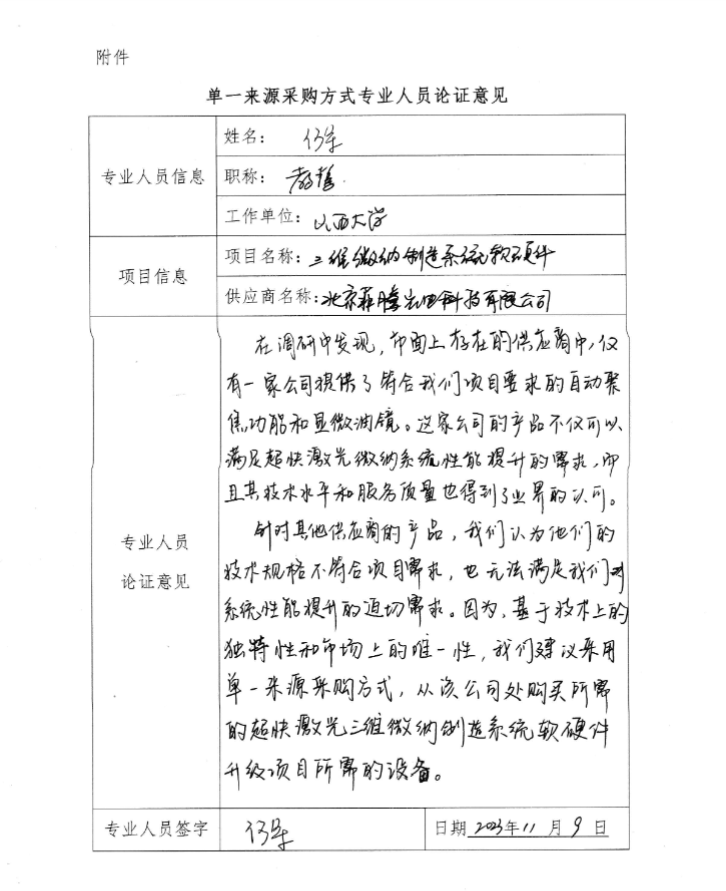 附件
单一来源采购方式专业人员论证意见
专业人员信息
姓名:
职称: 教授
工作单位: 山西大学
项目信息
项目名称: 三维微纳制造系统软硬件
供应商名称: 北京菲腾光电科技有限公司
专业人员
论证意见
在调研中发现,市面上存在的供应商中,仅
有一家公司提供了符合我们项目要求的自动聚
焦功能和显微油镜。这家公司的产品不仅可以
满足超快激光微纳系统性能提升的需求,而
且其技术水平和服务质量也得到了业界的认可。
针对其他供应商的产品,我们认为他们的
技术规格不符合项目需求,也无法满足我们对
系统性能提升的迫切需求。因为,基于技术上的
独特性和市场上的唯一性,我们建议采用
单一来源采购方式,从该公司处购买所需
的超快激光三维微纳制造系统软硬件
升级项目所需的设备。
专业人员签字
日期 2023年11月9日